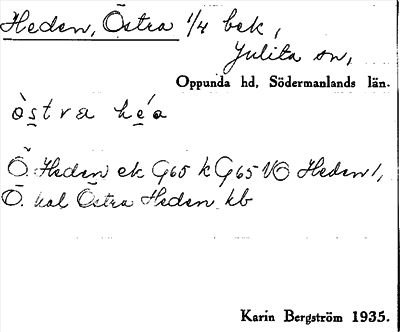 Heden, Östra 1/4 bek,
Julita sn,
Oppunda hd, Södermanlands län.
òstra héa
Ö. Heden ek G65 k G65 VO Heden 1,
Ö. kal Östra Heden kb
Karin Bergström 1935.